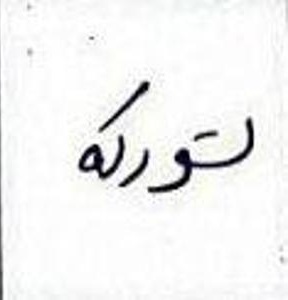 لتورکه